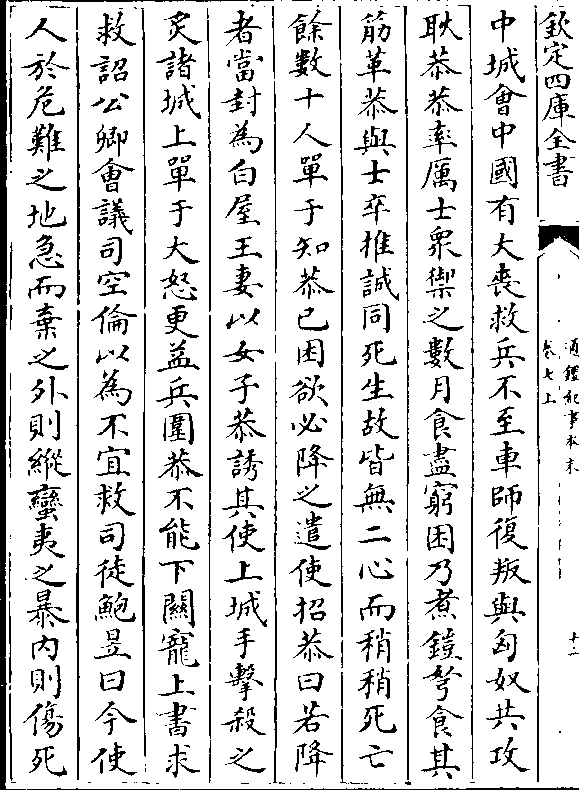 欽定四庫全書
通鑑紀事本末
卷七上
十二
中城會中國有大喪救兵不至車師復叛與匈奴共攻
耿恭恭率厲士衆禦之數月食盡窮困乃煮鎧弩食其
筋革恭與士卒推誠同死生故皆無二心而稍稍死亡
餘數十人單于知恭已困欲必降之遣使招恭曰若降
者當封為白屋王妻以女子恭誘其使上城手擊殺之
炙諸城上單于大怒更益兵圍恭不能下關寵上書求
救詔公卿會議司空倫以為不宜救司徒鮑昱曰今使
人於危難之地急而棄之外則縱蠻夷之暴内則傷死